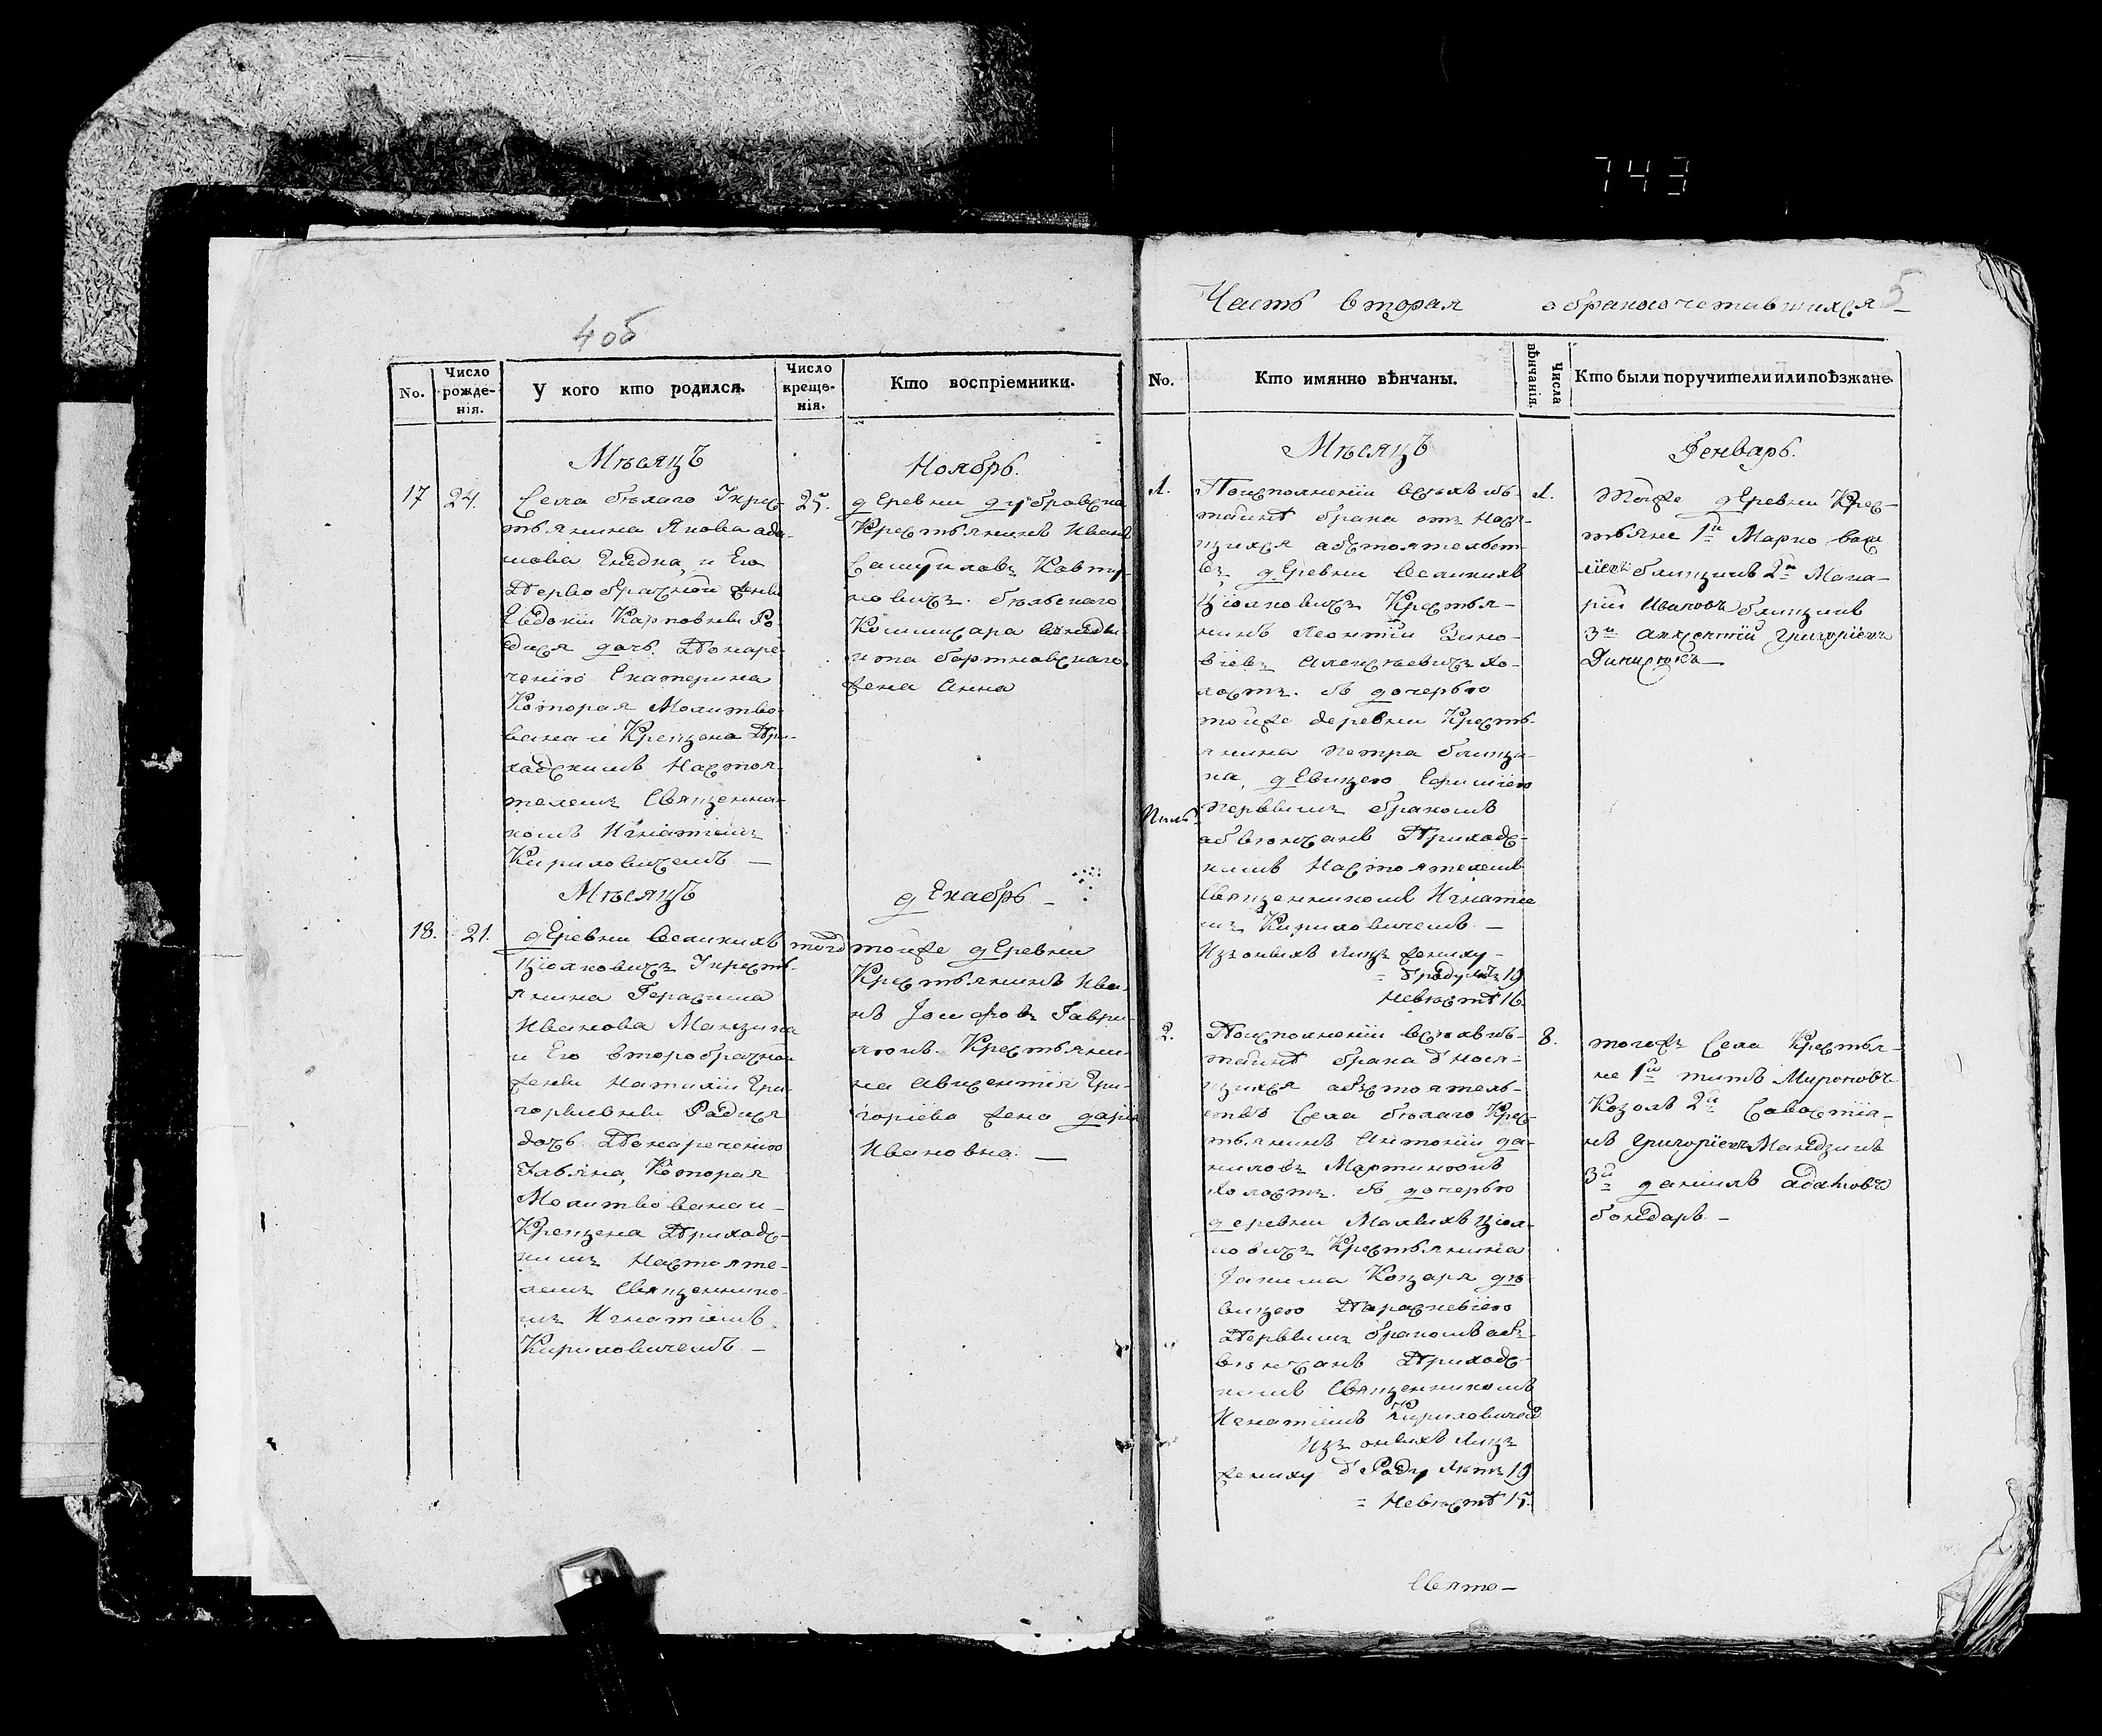 743
4 об
No.
Число рожде-нія.
У кого кто родился.
Число креще-нія.
Кто воспріемники.
Мѣсяцъ
Ноябрь.
17
24.
25.
Села бѣлаго Укрес-
тьянина Якова ада-
мова и Его
Первобрачной жены
Евдокіи Карповны Ро
дися дочь Понаре-
ченію Екатерина
Которая Молитво-
вана и Крещена При-
ходскимъ Настоя-
телемъ Священни-
комъ Игнатіемъ
Кириловичемъ —
деревни дубровска
Крестьянинъ Иванъ
Самуиловъ
бѣльскаго
Коммисара
жена Анна
Мѣсяцъ
декабрь —
18.
21.
тогд
деревни Великихъ
Ціолковичъ Укресть-
янина Герасима
Иванова Мандзина
и Его второбрачной
жены Наталіи Гри-
горьевны Родися
дочь Понареченію
Ульяна, Которая
Молитвована и
Крещена Приходс-
кимъ Настояте-
лемъ Священнико-
мъ Игнатіемъ
Кириловичемъ —
тойже деревни
Крестьянинъ Ива-
нъ Іосифовъ Гаври-
люкъ. Крестьяни-
на Авксентія Гри-
горіева жена дарія
Ивановна —
Часть вторая о бракосочетавшихся
5
No.
Кто имянно вѣнчаны.
Числа вѣнчанія.
Кто были поручители или поѣзжане.
Мѣсяцъ
Генварь.
1.
1.
Поисполненіи всѣхъ къ-
тайнѣ брака относя-
щихся абстоятельст-
въ, деревни Великихъ
Ціолковичъ Крестья-
нинъ Леонтій Зино-
віевъ Алексѣевичъ хо-
лостъ. съ дочерью
тойже деревни Кресть-
янина Петра блищи-
на, девицею Ефиміею
первымъ бракомъ
абвѣнчанъ Приходс-
кимъ Настоятелемъ
Священникомъ Игнатіе
мъ Кириловичемъ. —
Изъ оныхъ лицъ жениху —
= Ѿроду лѣтъ 19
Невѣстѣ 16.
тойже деревни Крес-
тьяне 1й Марко васи
ліевъ блищикъ 2й Мака-
рій Ивановъ блищикъ
3й авксентій Григоріевъ
2.
8.
Поисполненіи всѣхъ къ-
тайнѣ брака Ѿнося-
щихся абстоятель-
ствъ Села бѣлаго Крес-
тьянинъ Антоній да-
ниловъ Мартинюкъ
холостъ. съ дочерью
деревни Малыхъ Ціол-
ковичъ Крестьянина
Якима Коцаря дѣ-
вицею Параскевіею
Первымъ бракомъ аб-
вѣнчанъ Приходс-
кимъ Священникомъ
Игнатіемъ Кириловичемъ
Изъ оныхъ лицъ
жениху Ѿ Роду лѣтъ 19
= Невѣстѣ 17.
тогожъ Села Крестья-
не 1й титъ Мироновъ
Козолъ 2й Савостія-
нъ Григоріевъ Мандзикъ
3й даніилъ адамовъ
бондаръ. —
Свято —